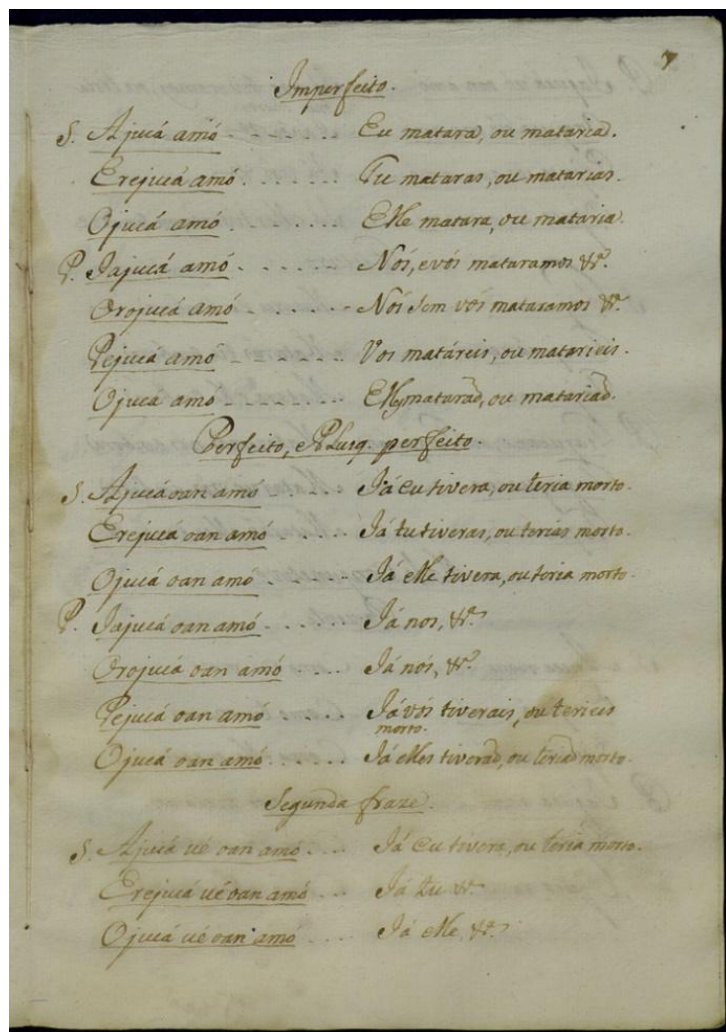 7
Imperfeito.
S. Ajucá amó - - - - - - - Eu matara, ou mataria.
Erejucá amó . . . . . . . Tu mataras, ou matarias.
Ojucá amó . - - - - - - - Elle matara, ou mataria.
P. Jajucá amó - - - - - - - Nós, e vós mataramos &ª.
Orojucá amó - - - - - - - Nós sem vós mataramos &ª.
Pejucá amó - - - - - - - Vos matáreis, ou matarieis.
Ojuca amó - - - - - - - Elles mataraõ, ou matariaõ.
Perfeito, e Plusq. perfeito.
S. Ajucá oan amó . . . . . Já eu tivera, ou teria morto.
Erejucá oan amó . . . . . Já tu tiveras, ou terias morto.
Ojucá oan amó . . . . . . Já elle tivera, ou teria morto.
P. Jajucá oan amó . . . . . Já nos, &ª
Orojucá oan amó . . . . Já nós, &ª
Pejucá oan amó . . . . . Já vós tiverais, ou terieis
morto.
Ojucá oan amó . . . . . . Já elles tiveraõ, ou teriaõ morto.
Segunda fraze.
S. Ajucá ué oan amó . . . . Já eu tivera, ou teria morto.
Erejucá ué oan amó . . . . Já tu &ª
Ojucá ué oan amó . . . . Já elle &ª